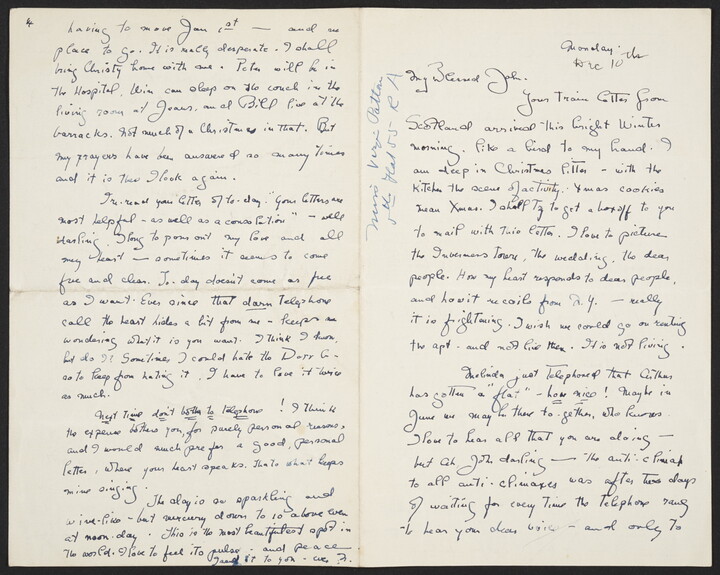 Monday.
Dec 10th
My Blessed John.
Your Train letter from
Scotland arrived this bright Winter
morning. like a bird to my hand. I
am deep in Christmas litter - with the
kitchen the scene of activity. Xmas cookies
mean Xmas. I shall try to get a box off to you
to mail with this letter. I love to picture
the Inverness town, the wedding, the dear
people. How my heart responds to dear people,
and how it recoils from N.Y. - really
it is frightening. I wish we could go on renting
the apt. and not live there. It is not living.
Melinda just telephoned that Arthur
has gotten a "flat" - how nice! Maybe in
June we may be there to-gether, who knows.
I love to hear all that you are doing -
but ah, John darling - the anti-climax
to all anti-climaxes was after two days
of waiting for every time the telephone rang
to hear your dear voice - and only to
4
having to move Jan 1st - and no
place to go. It is really desperate. I shall
bring Christy home with me. Peter will be in
the Hospital, Win can sleep on the couch in the
living room at Jeans, and Bill live at the
barracks. Not much of a Christmas in that. But
my prayers have been answered so many times
and it is then I look again.
I re-read your letter of to-day. "Your letters are
most helpful - as well as a consolation" - well
darling, I long to pour out my love and all
my heart - sometimes it seems to come
free and clear. To-day doesn't come as free
as I want. Ever since that darn telephone
call the heart hides a bit from me - keeps me
wondering what it is you want. I think I know,
but do I? Sometimes I could hate the Dorr Co -
so to keep from hating it, I have to love it twice
as much.
Next time don't bother to telephone! I think
the expense bothers you, for purely personal reasons,
and I would much prefer a good, personal
letter, where your heart speaks. Thats what keeps
mine singing.
The day is so sparkling and
wine-like - but mercury down to 10 above even
at noon-day. This is the most beautifulest spot in
the world. I love to feel its pulse - and peace
I send it to you - ever